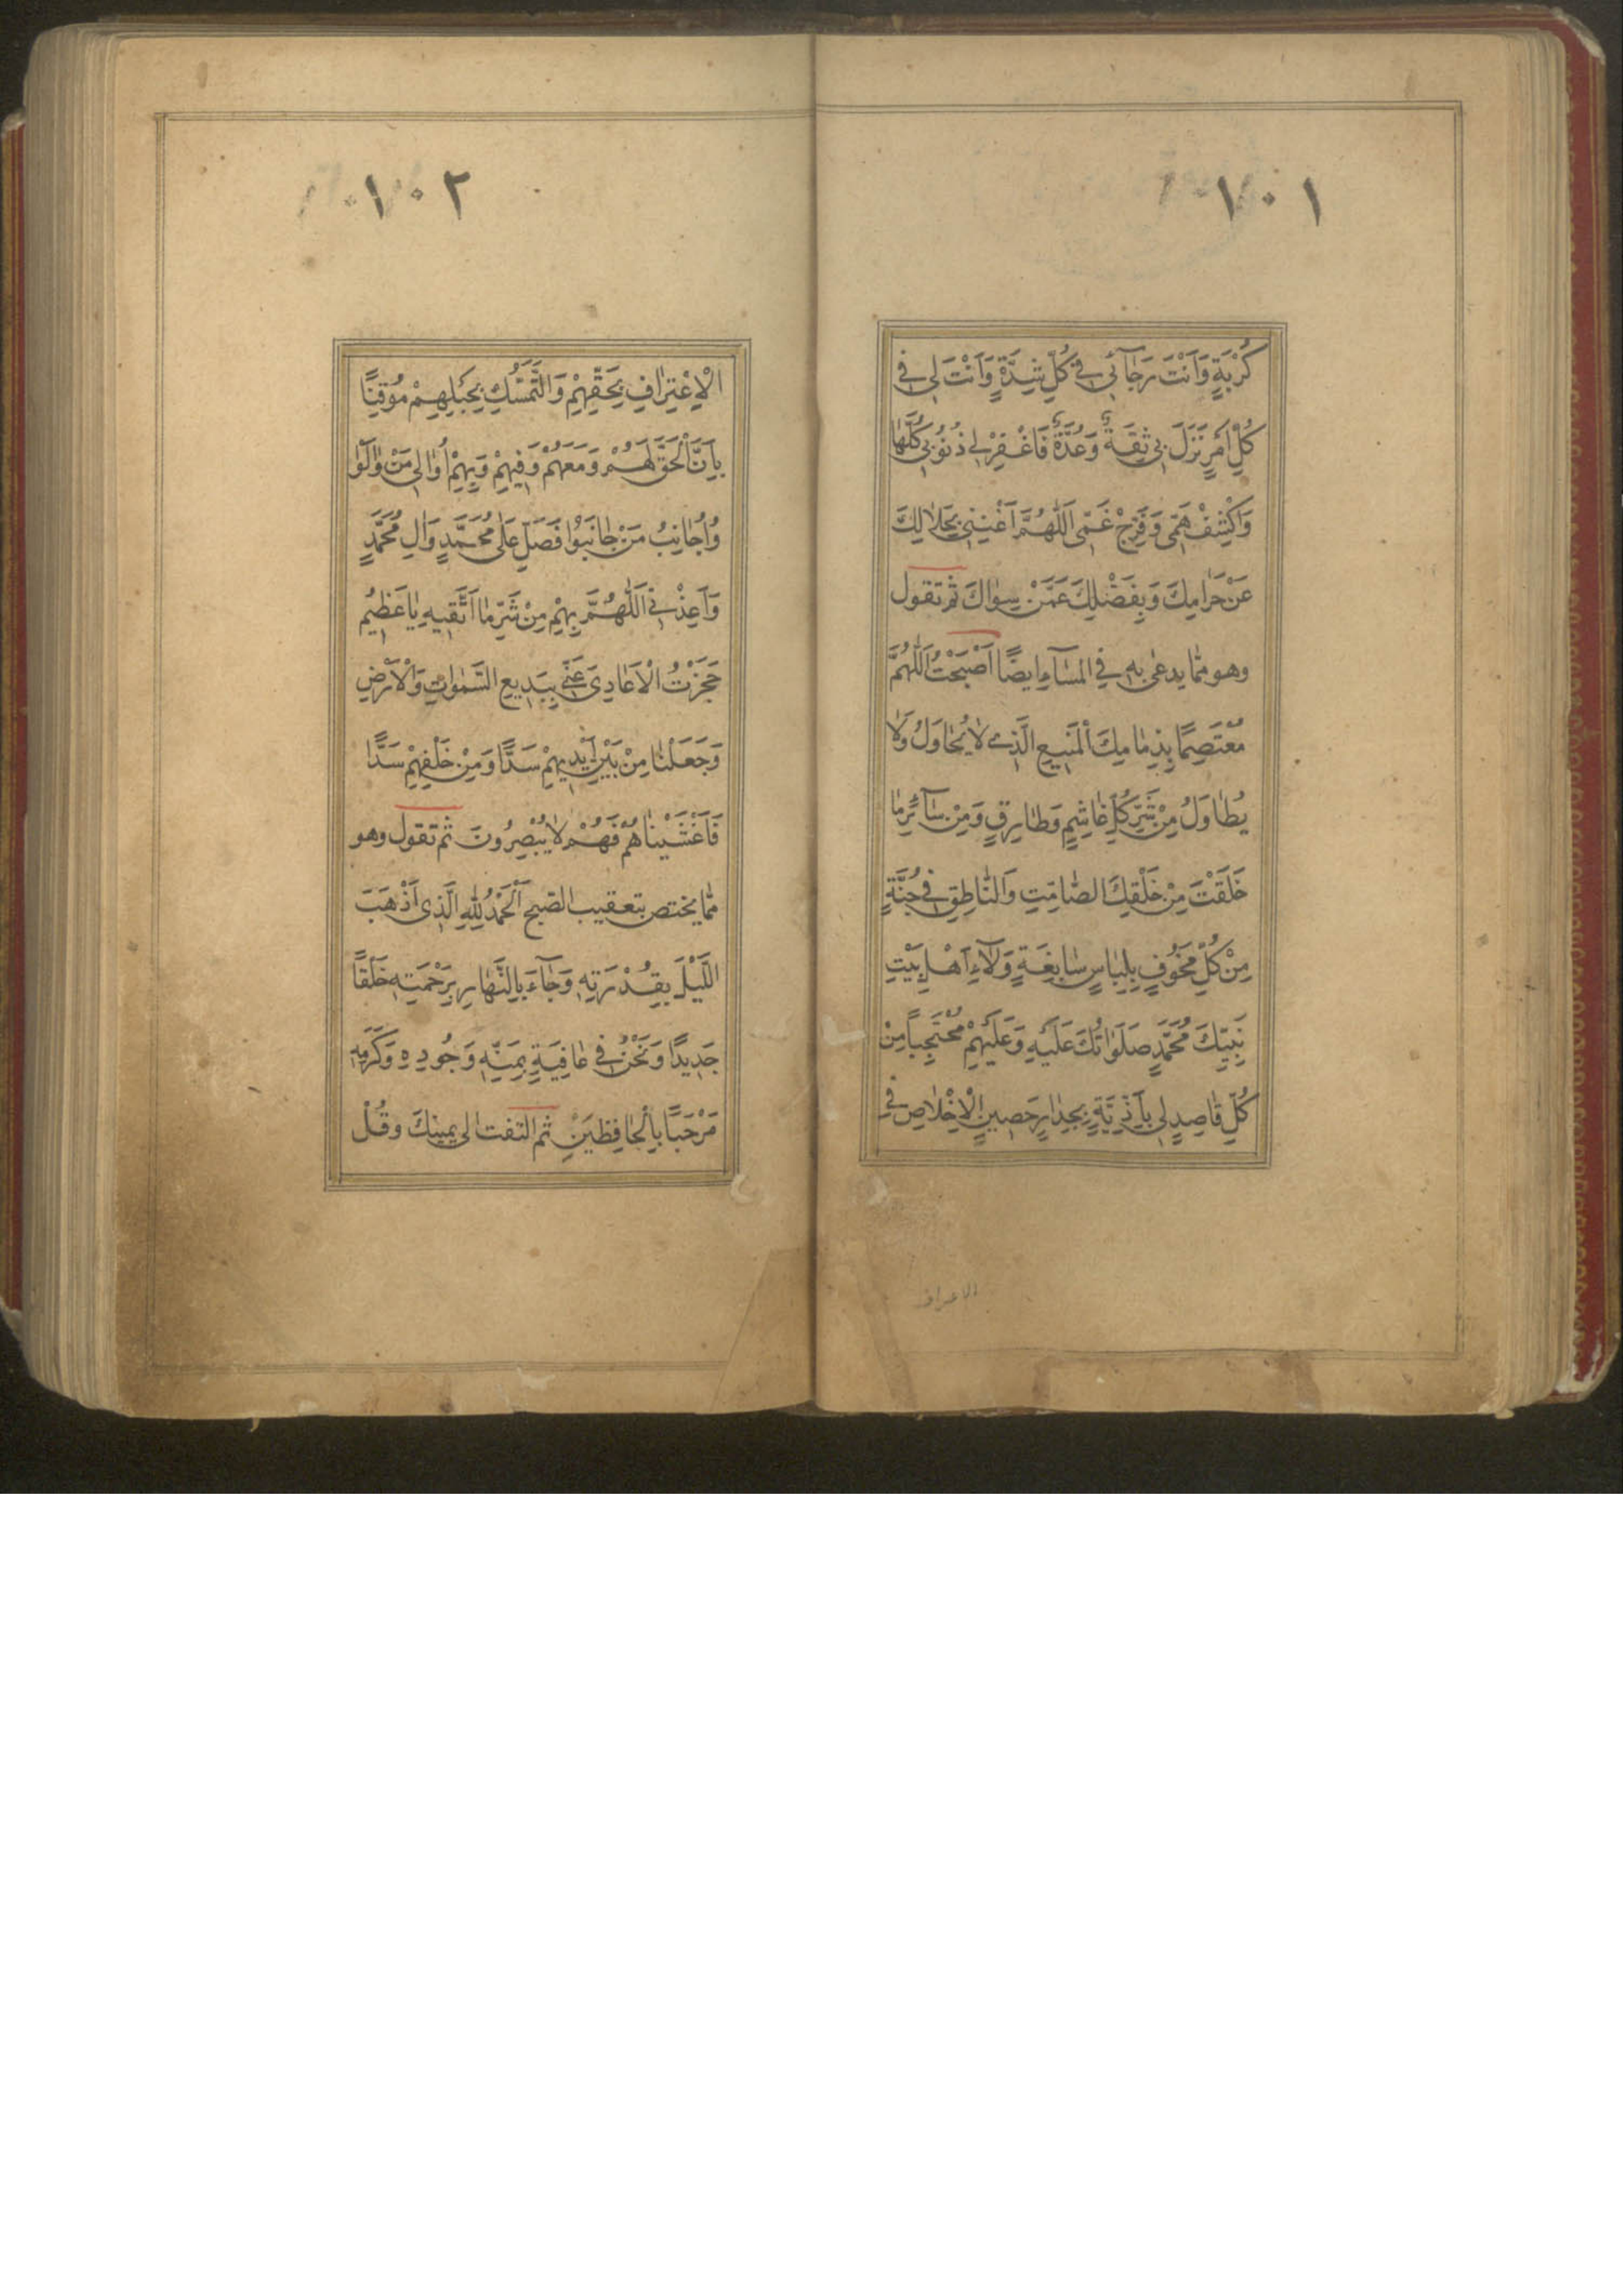 ١٠١
كُرْبَةٍ وَاَنْتَ رَجٰآئي في كُلِّ شِدَّةٍ وَاَنْتَ لي في
كُلِّ اَمْرٍ نَزَلَ بي ثِقَةٌ وَعُدَّةٌ فَاغْفِرْ لي ذُنُوبي كُلَّهٰا
وَاكْشِفْ هَمّي وَفَرِّجْ غَمّي اَللّٰهُمَّ اَغْنِني بِحَلٰالِكَ
عَنْ حَرٰامِكَ وَبِفَضْلِكَ عَمَّنْ سِوٰاكَ ثم تقول
وهو ممّا يدعى به في المسآء ايضًا اَصْبَحْتُ اَللّٰهُمَّ
مُعْتَصِمًا بِذِمٰامِكَ الْمَنيعِ الَّذي لٰا يُحٰاوَلُ وَلٰا
يُطٰاوَلُ مِنْ شَرِّ كُلِّ غٰاشِمٍ وَطٰارِقٍ وَمِنْ سٰآئِرِ مٰا
خَلَقْتَ مِنْ خَلْقِكَ الصّٰامِتِ وَالنّٰاطِقِ في جُنَّةٍ
مِنْ كُلِّ مَخُوفٍ بِلِبٰاسٍ سٰابِغَةٍ وَلٰآءِ اَهْلِ بَيْتِ
نَبِيِّكَ مُحَمَّدٍ صَلَوٰاتُكَ عَلَيْهِ وَعَلَيْهِمْ مُحْتَجِبًا مِنْ
كُلِّ قٰاصِدٍ لي بِاَذِيَّةٍ بِجِدٰارٍ حَصينٍ الْاِخْلٰاصِ في
الاعتراف
١٠٢
الْاِعْتِرٰافِ بِحَقِّهِمْ وَالتَّمَسُّكِ بِحَبْلِهِمْ مُوقِنًا
بِاَنَّ الْحَقَّ لَهُمْ وَمَعَهُمْ وَفيهِمْ وَبِهِمْ اُوٰالي مَنْ وٰالَوْا
وَاُجٰانِبُ مَنْ جٰانَبُوا فَصَلِّ عَلٰى مُحَمَّدٍ وَاٰلِ مُحَمَّدٍ
وَاَعِذْني اَللّٰهُمَّ بِهِمْ مِنْ شَرِّ مٰا اَتَّقيهِ يٰا عَظيمُ
حَجَزْتُ الْاَعٰادِيَ عَنّي بِبَديعِ السَّمٰوٰاتِ وَالْاَرْضِ
وَجَعَلْنٰا مِنْ بَيْنِ اَيْديهِمْ سَدًّا وَمِنْ خَلْفِهِمْ سَدًّا
فَاَغْشَيْنٰاهُمْ فَهُمْ لٰا يُبْصِرُونَ ثم تقول وهو
ممّا يختص بتعقيب الصّبح اَلْحَمْدُ لِلّٰهِ الَّذي اَذْهَبَ
اللَّيْلَ بِقُدْرَتِهِ وَجٰآءَ بِالنَّهٰارِ بِرَحْمَتِهِ خَلْقًا
جَديدًا وَنَحْنُ في عٰافِيَةٍ بِمَنِّهِ وَجُودِهِ وَكَرَمِهِ
مَرْحَبًا بِالْحٰافِظَيْنِ ثم التفت الى يمينك وقُلْ